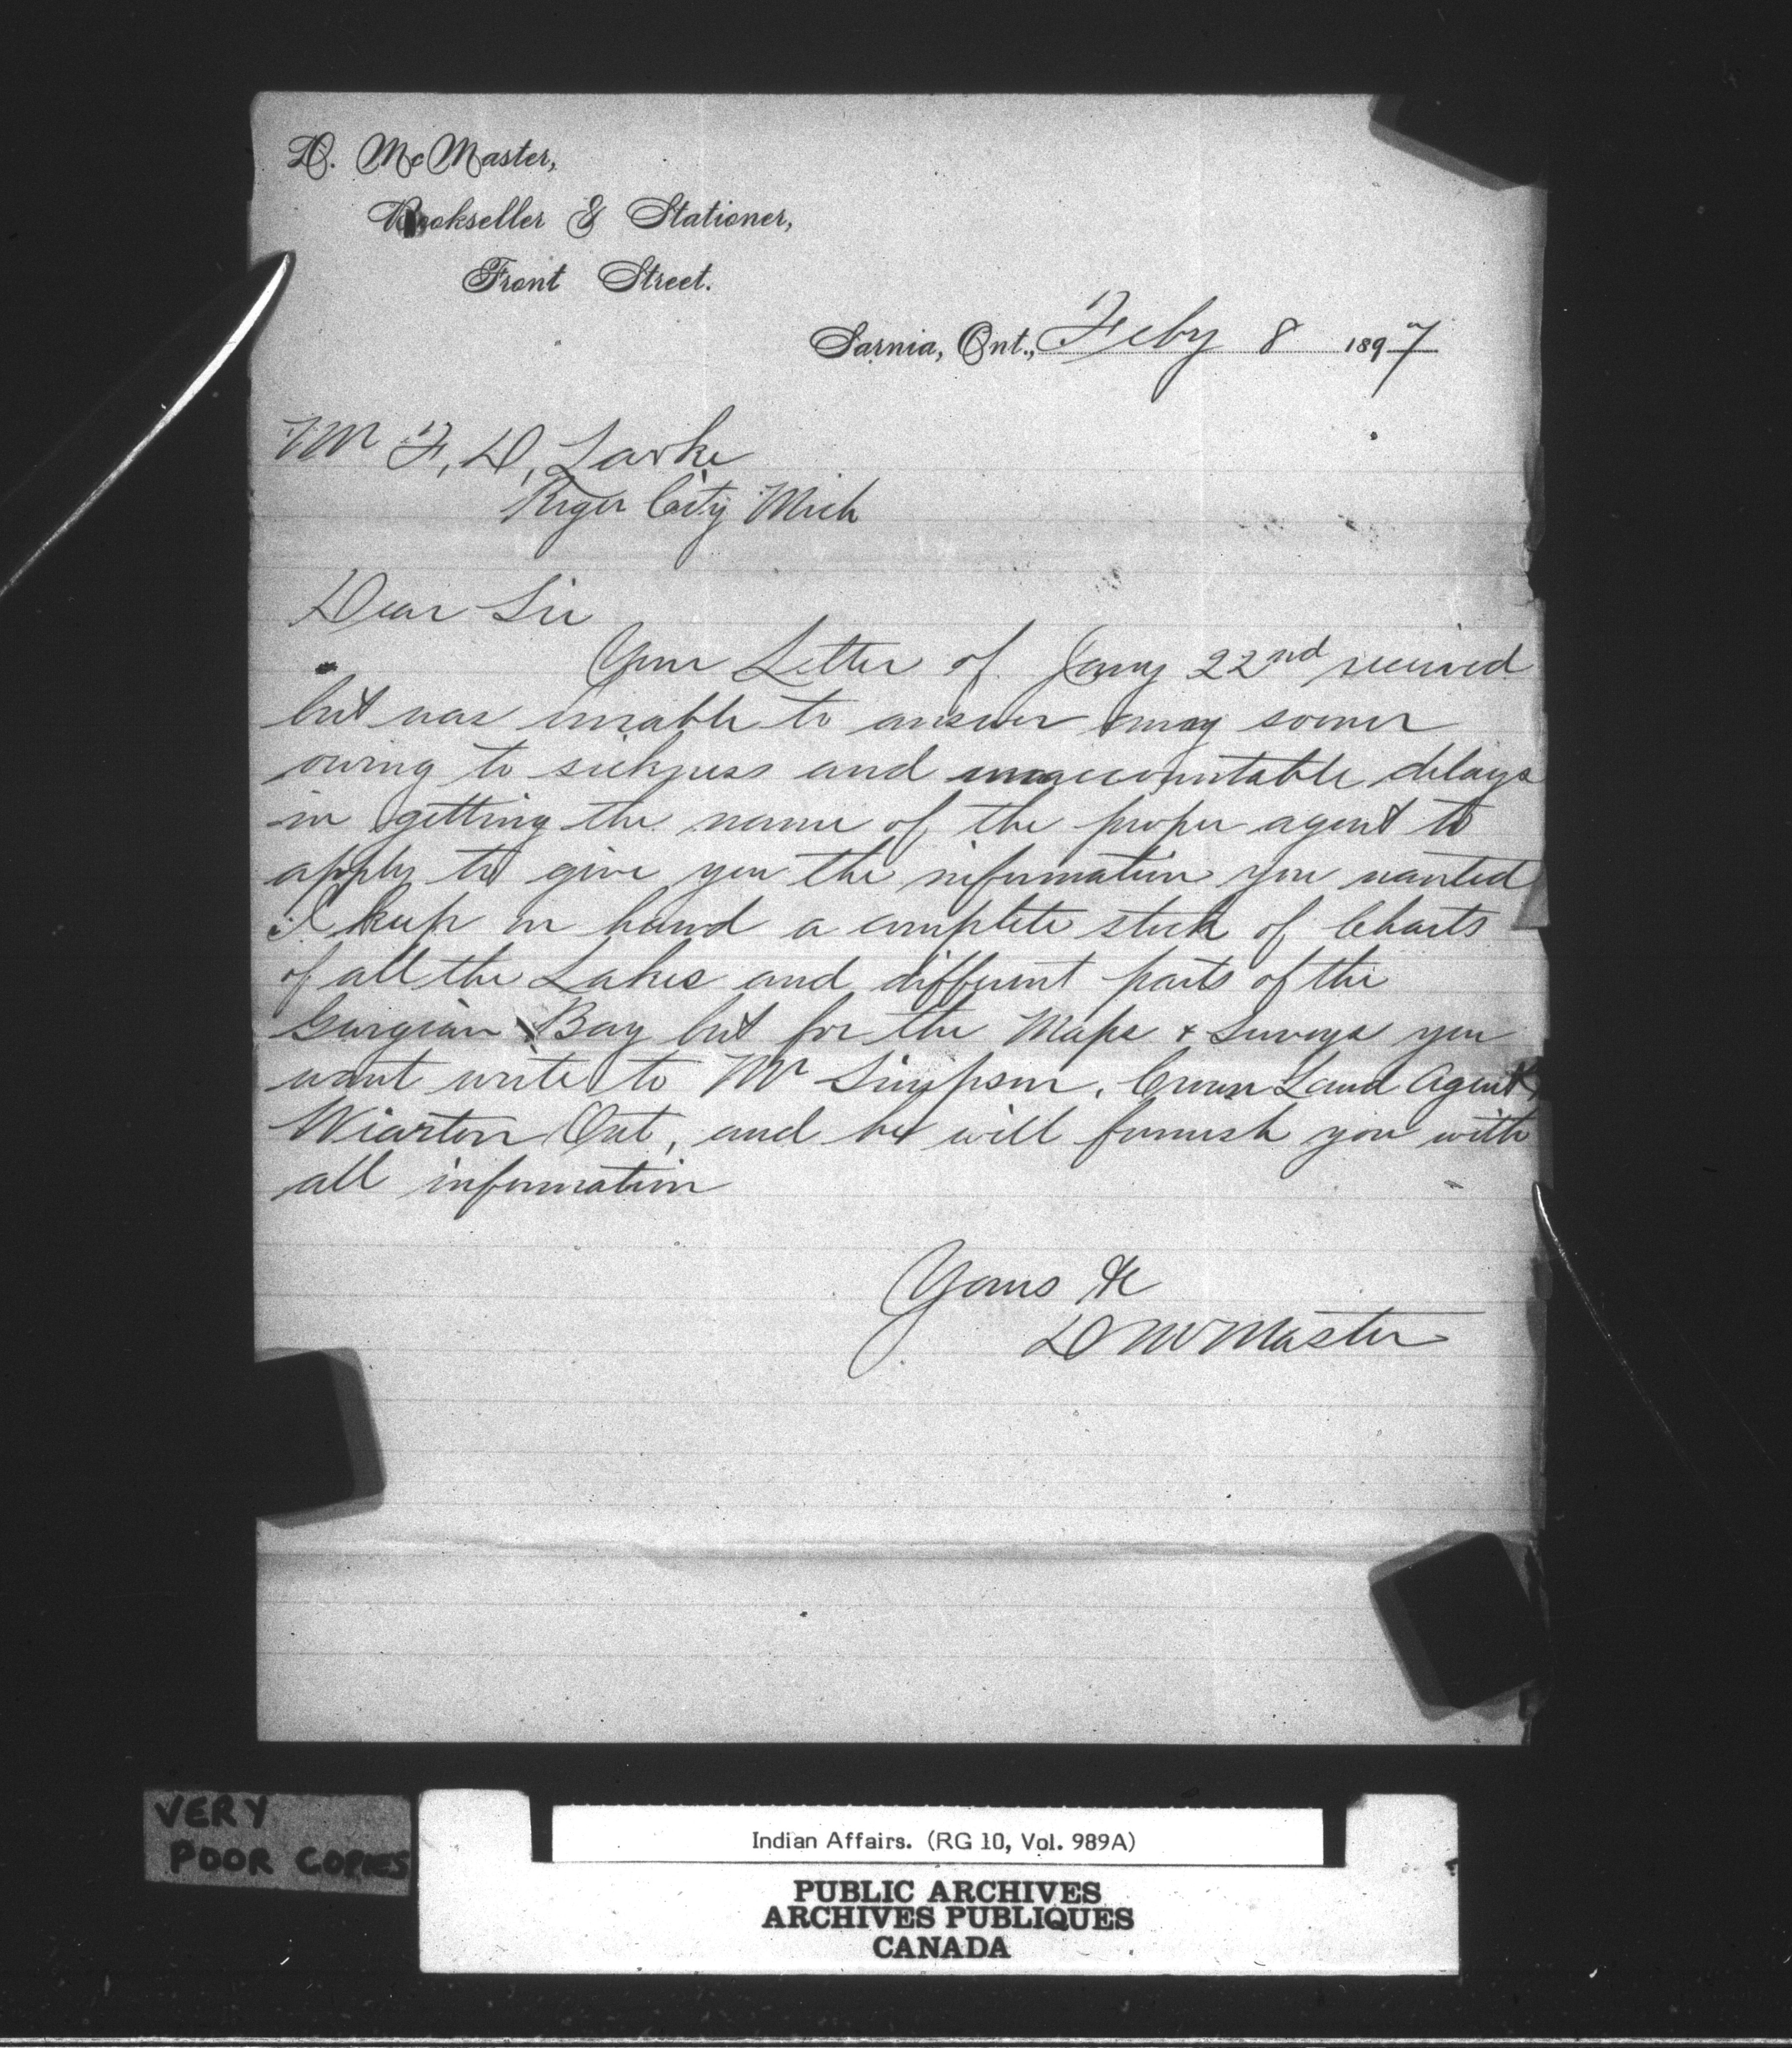 D. McMaster,
Bookseller & Stationer,
Front Street.
Sarnia, Ont., Feby 8 1897
Mr F. D. Larke
Roger City Mich
Dear Sir
Your Letter of Jany 22nd received
but was unable to answer any sooner
owing to sickness and unaccountable delays
in getting the name of the proper agent to
apply to give you the information you wanted
I keep on hand a complete stock of Charts
of all the Lakes and different parts of the
Georgian Bay but for the Maps & Surveys you
want write to Mr Simpson, Crown Land Agent,
Wiarton Ont, and he will furnish you with
all information
Yours &c
D McMaster
VERY
POOR COPIES
Indian Affairs. (RG 10, Vol. 989A)
PUBLIC ARCHIVES
ARCHIVES PUBLIQUES
CANADA